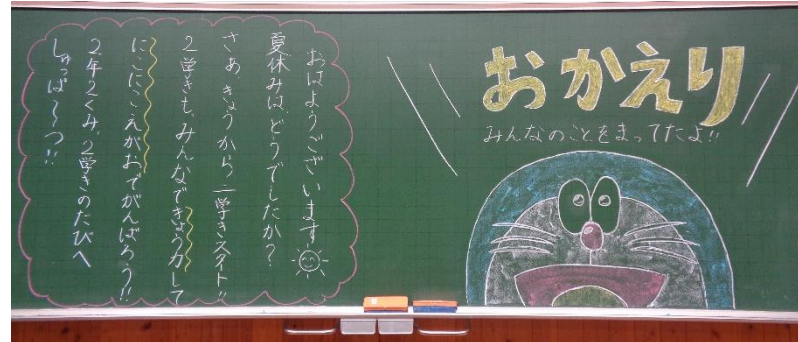 おかえり
みんなのことをまってたよ!!
おはようございます
夏休みは、どうでしたか?
さあ、きょうから二学きスタート!!
2学きも、みんなできょう力して
にこにこえがおでがんばろう!!
2年2くみ、2学きのたびへ
しゅっぱ~つ!!